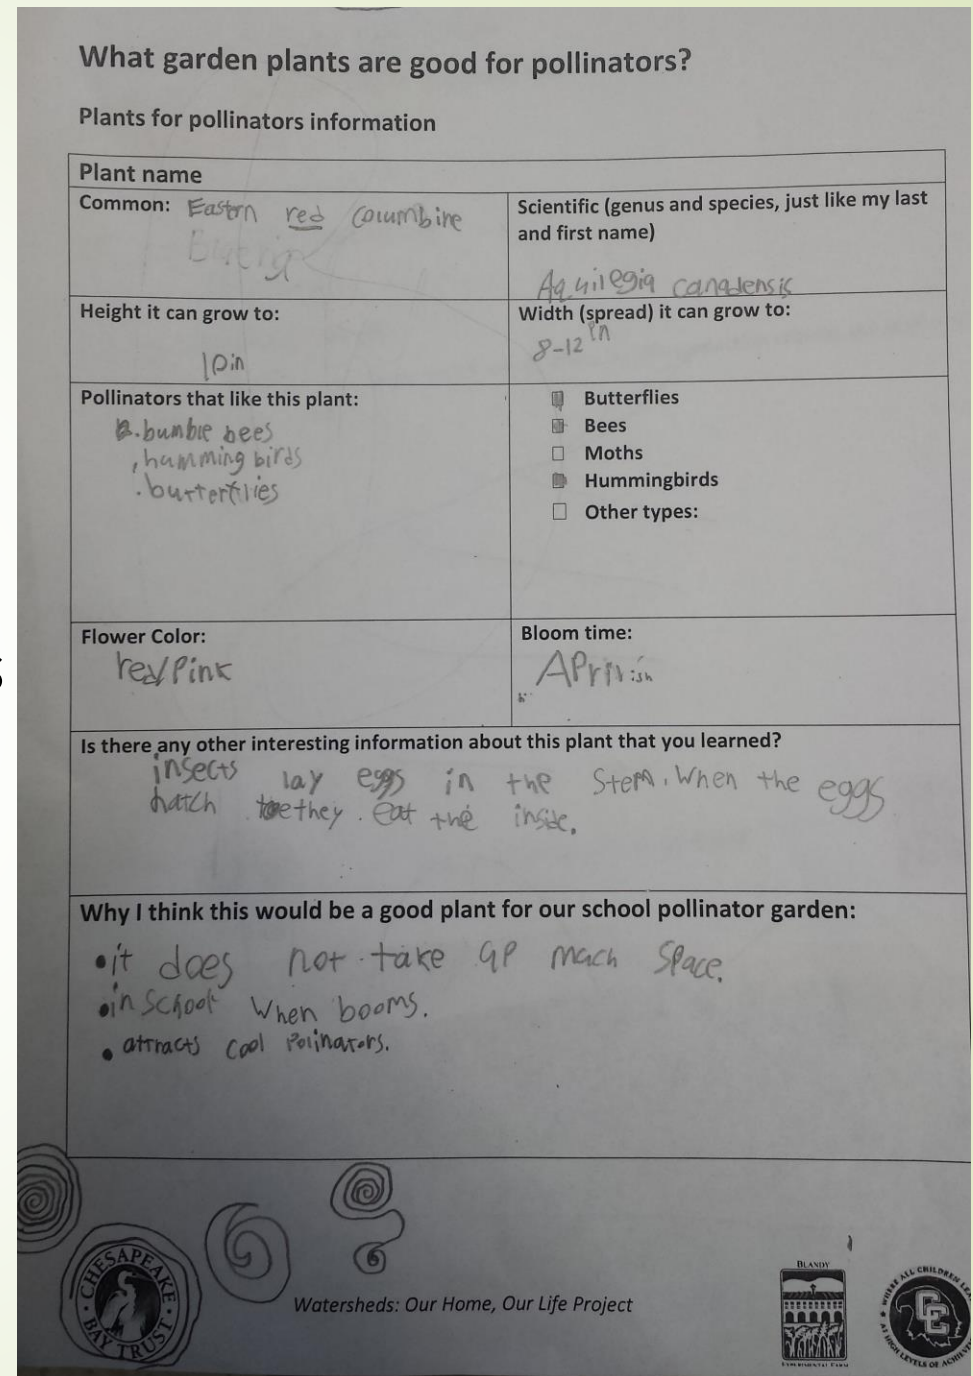 What garden plants are good for pollinators?
Plants for pollinators information
Plant name
Common: Eastrn red Columbine
Scientific (genus and species, just like my last
and first name)
Aquilegia canadensis
Height it can grow to:
10in
Width (spread) it can grow to:
8-12 in
Pollinators that like this plant:
.bumble bees
,humming birds
.burterflies
Butterflies
Bees
Moths
Hummingbirds
Other types:
Flower Color:
red/Pink
Bloom time:
APrilish
Is there any other interesting information about this plant that you learned?
insects lay eggs in the Stem. When the eggs
hatch they. eat the inside.
Why I think this would be a good plant for our school pollinator garden:
•it does not take up mach Space.
•in School When booms.
•attracts cool Polinators.
CHESAPEAKE
BAY TRUST
Watersheds: Our Home, Our Life Project
BLANDY
EXPERIMENTAL FARM
WHERE ALL CHILDREN
CE
AT HIGH LEVELS OF